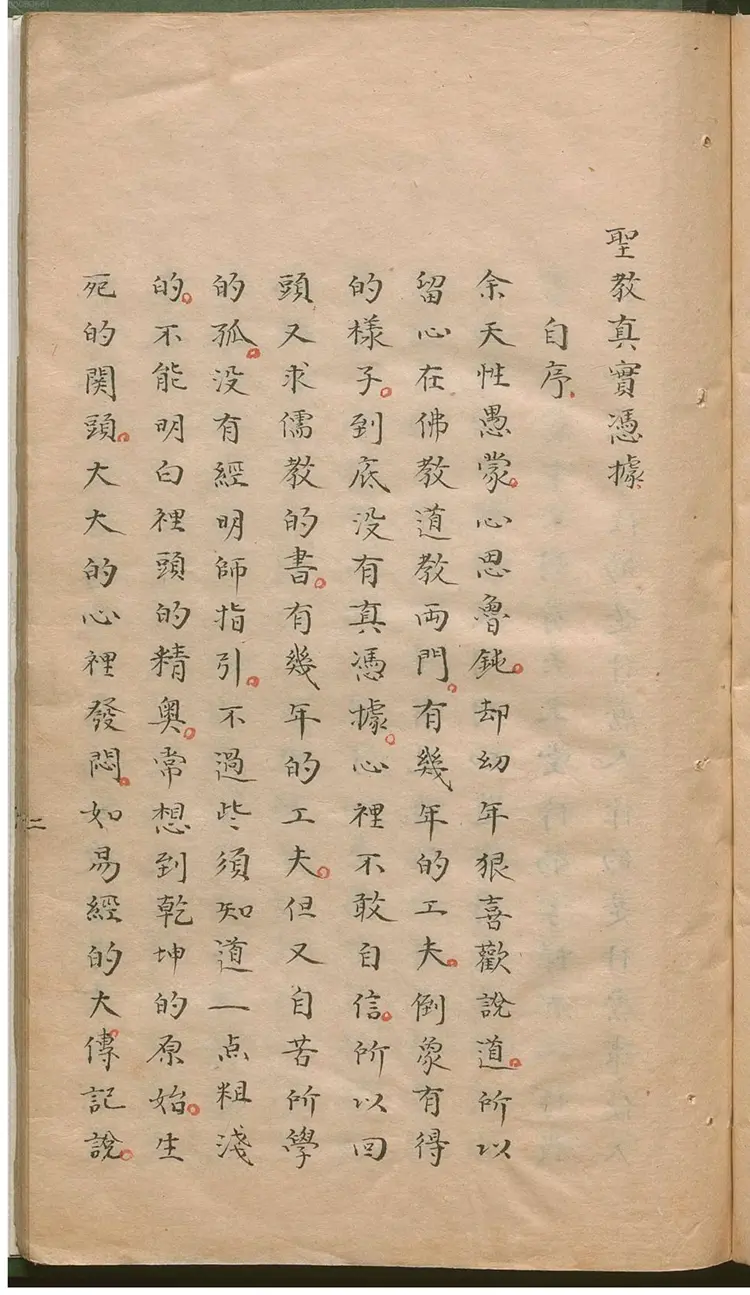 聖教真實憑據
自序
余天性愚蒙心思魯鈍却幼年狠喜歡說道所以
留心在佛教道教両門有幾年的工夫倒象有得
的樣子到底没有真憑據心裡不敢自信所以回
頭又求儒教的書有幾年的工夫但又自苦所學
的孤没有經明師指引不過些須知道一点粗淺
的不能明白裡頭的精奥常想到乾坤的原始生
死的関頭大大的心裡發悶如易經的大傳記說
二